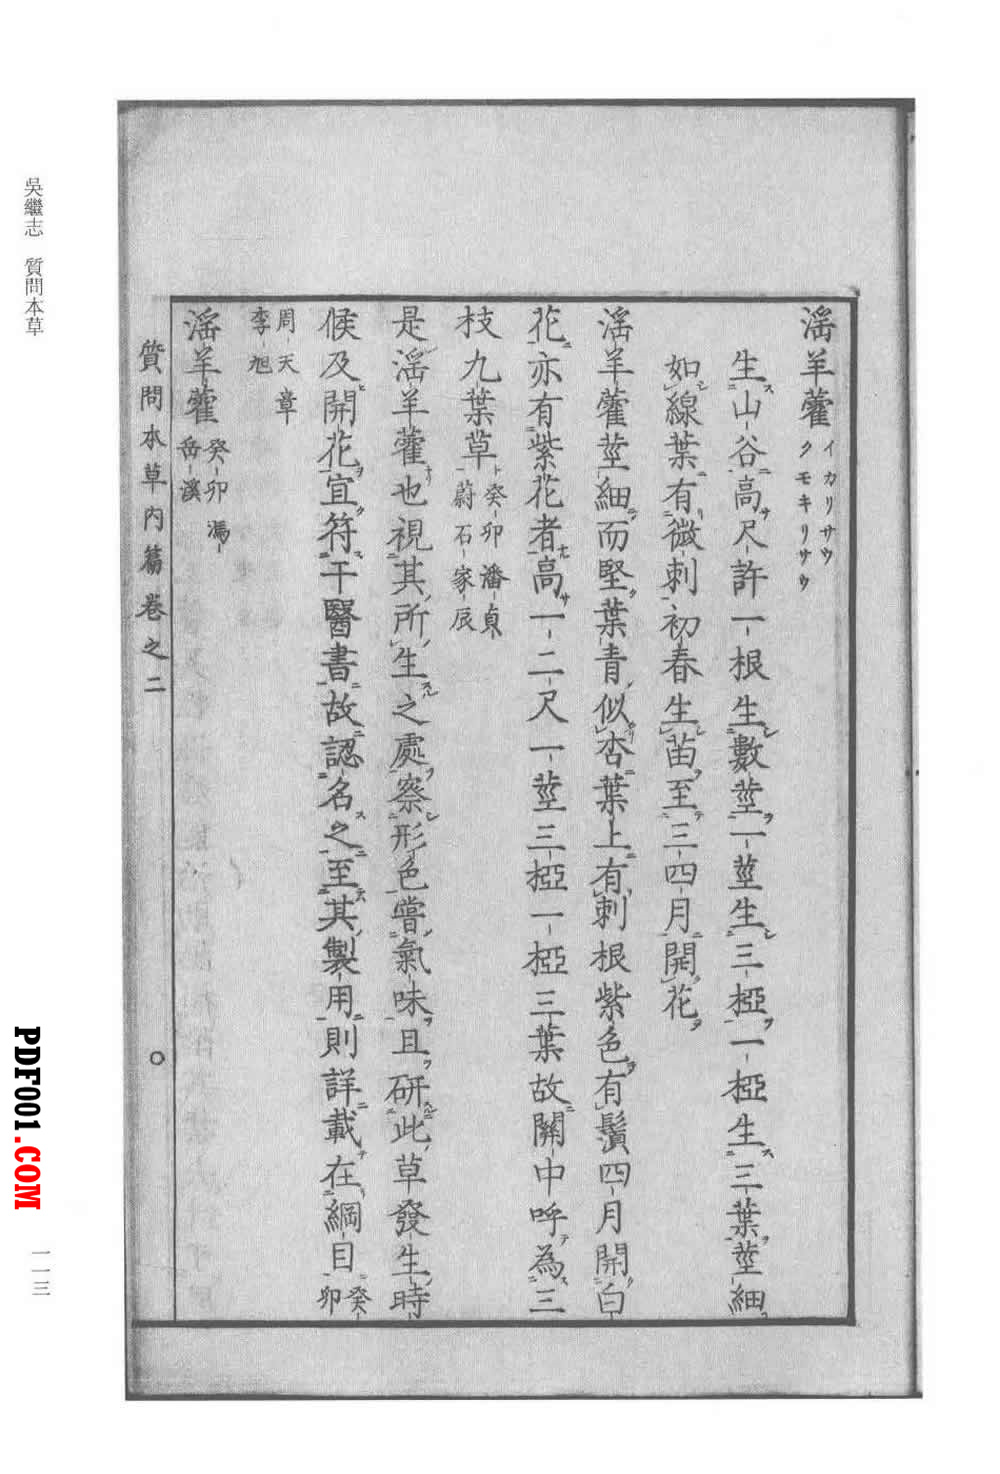 淫羊藿 イカリサウ クモキリサウ
生山谷高尺許一根生數莖一莖生三椏一椏生三葉莖細
如線葉有微刺初春生苗至三四月開花
淫羊藿莖細而堅葉青似杏葉上有刺根紫色有鬚四月開白
花亦有紫花者高一二尺一莖三椏一椏三葉故關中呼為三
枝九葉草 癸卯潘貞蔚石家辰
是淫羊藿也視其所生之處察形色嘗氣味且研此草發生時
候及開花宜符干醫書故認名之至其製用則詳載在綱目 癸卯
周天章
李旭
淫羊藿 癸卯馮岳溪
質問本草內篇卷之二
吳繼志 質問本草
PDF001.COM
一一三